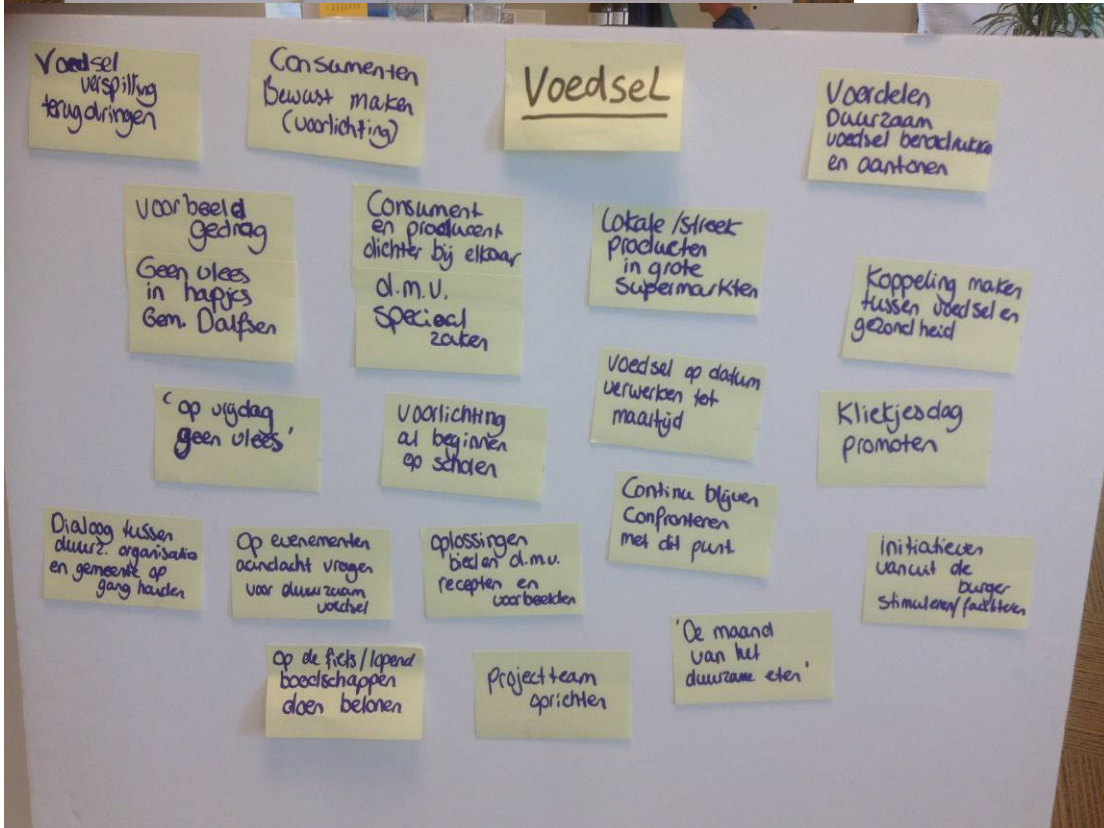 Voedsel
verspilling
terugdringen
Consumenten
Bewust maken
(voorlichting)
Voedsel
Voordelen
Duurzaam
voedsel benadrukken
en aantonen
Voorbeeld
gedrag
Geen vlees
in hapjes
Gem. Dalfsen
Consument
en producent
dichter bij elkaar
d.m.v.
Speciaal
zaken
Lokale/streek
producten
in grote
Supermarkten
Koppeling maken
tussen voedsel en
gezondheid
'op vrijdag
geen vlees'
Voorlichting
al beginnen
op scholen
Voedsel op datum
verwerken tot
maaltijd
Kliekjesdag
promoten
Dialoog tussen
duurz. organisatie
en gemeente op
gang houden
Op evenementen
aandacht vragen
voor duurzaam
voedsel
Oplossingen
bieden d.m.v.
recepten en
voorbeelden
Continu blijven
Confronteren
met dit punt
initiatieven
vanuit de
burger
stimuleren/faciliteren
Op de fiets/lopend
boodschappen
doen belonen
Projectteam
oprichten
'De maand
van het
duurzame eten'